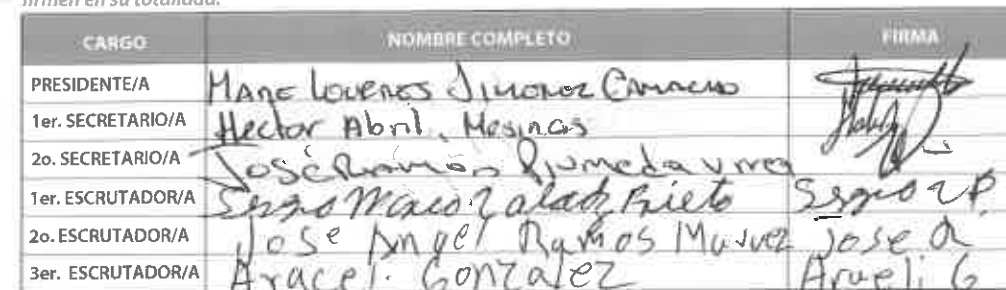 firmen en su totalidad.
CARGO NOMBRE COMPLETO FIRMA
PRESIDENTE/A Jimenez Camacho
1er. SECRETARIO/A Hector Abril Mesinas
2o. SECRETARIO/A José Ramón
1er. ESCRUTADOR/A Sergio Prieto Sergio Z P.
2o. ESCRUTADOR/A Jose Angel Ramos Jose A
3er. ESCRUTADOR/A Araceli Gonzalez Araeli G